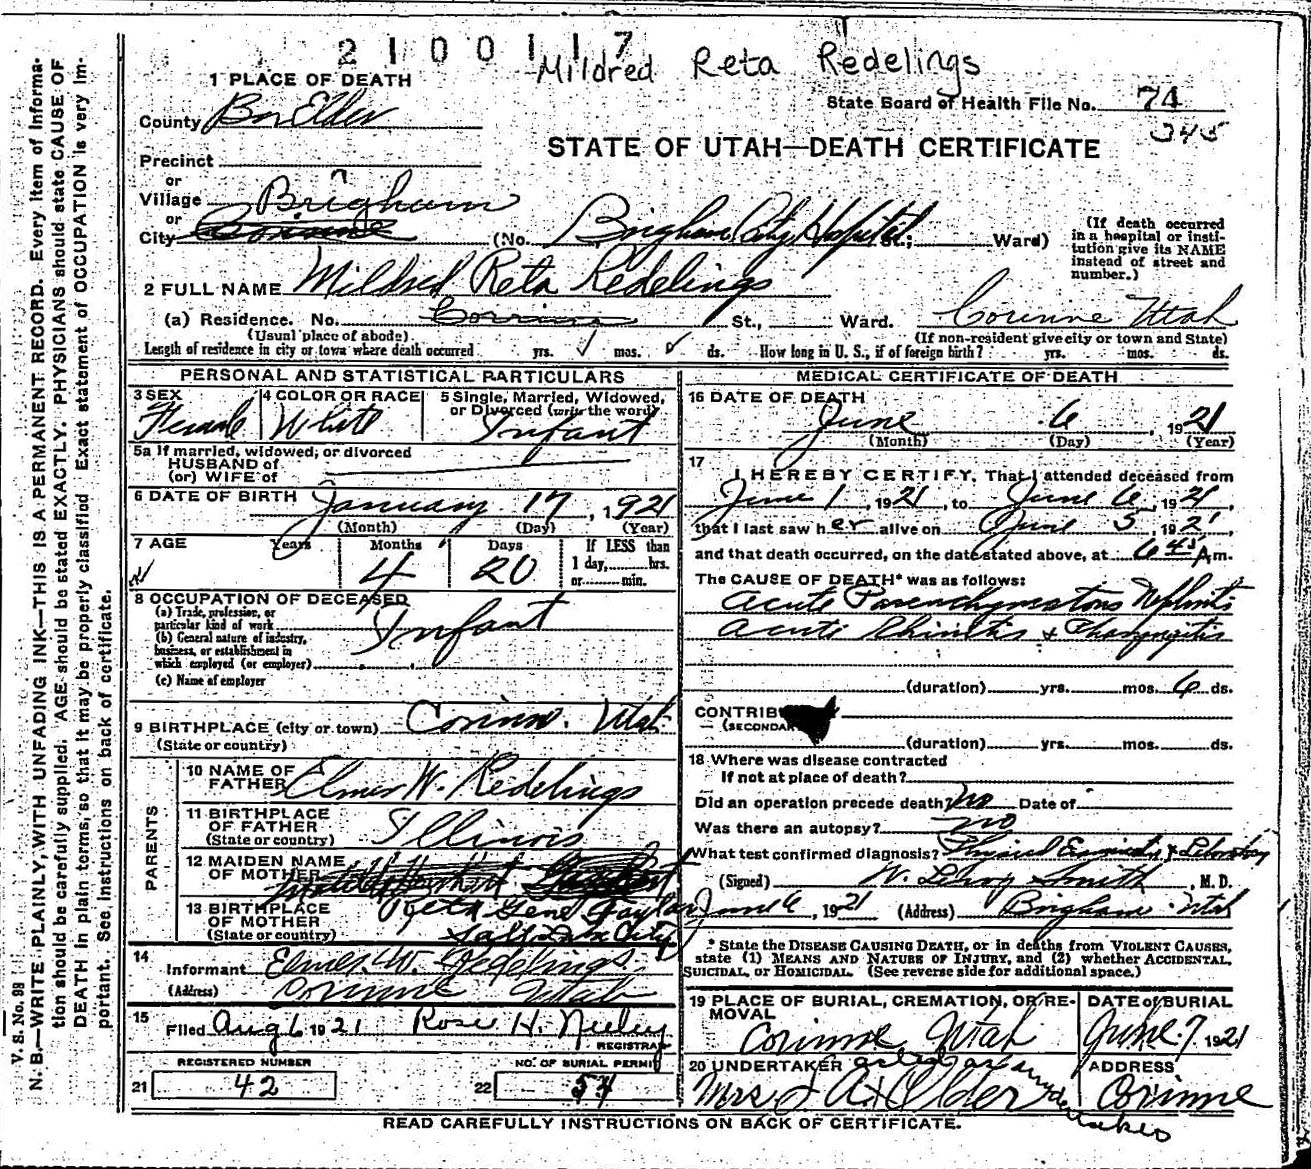 2100117
Mildred Reta Redelings
1 PLACE OF DEATH
State Board of Health File No. 74
345
County Box Elder
STATE OF UTAH—DEATH CERTIFICATE
Precinct
or
Village Brigham
or
City Corinne (No. Brigham City Hospital St.; Ward)
(If death occurred in a hospital or insti- tution give its NAME instead of street and number.)
2 FULL NAME Mildred Reta Redelings
(a) Residence. No. Corrine St., Ward. Corinne Utah
(Usual place of abode) (If non-resident give city or town and State)
Length of residence in city or town where death occurred yrs. mos. ds. How long in U. S., if of foreign birth? yrs. mos. ds.
PERSONAL AND STATISTICAL PARTICULARS
3 SEX 4 COLOR OR RACE 5 Single, Married, Widowed,
or Divorced (write the word)
Female White Infant
5a If married, widowed, or divorced
HUSBAND of
(or) WIFE of
6 DATE OF BIRTH January 17, 1921
(Month) (Day) (Year)
7 AGE Years Months Days If LESS than
1 day, hrs.
4 20 or min.
8 OCCUPATION OF DECEASED
(a) Trade, profession, or
particular kind of work Infant
(b) General nature of industry,
business, or establishment in
which employed (or employer)
(c) Name of employer
9 BIRTHPLACE (city or town) Corinne. Utah
(State or country)
PARENTS
10 NAME OF
FATHER Elmer W. Redelings
11 BIRTHPLACE
OF FATHER Illinois
(State or country)
12 MAIDEN NAME
OF MOTHER
Reta Gene Taylor
13 BIRTHPLACE
OF MOTHER
(State or country) Salt Lake City
14
Informant Elmer W. Redelings
(Address) Corinne Utah
15
Filed Aug 6 1921 Rose H. Neeley
REGISTRAR
REGISTERED NUMBER NO. OF BURIAL PERMIT
21 42 22 54
MEDICAL CERTIFICATE OF DEATH
16 DATE OF DEATH
June 6, 1921
(Month) (Day) (Year)
17
I HEREBY CERTIFY, That I attended deceased from
June 1, 1921, to June 6, 1921,
that I last saw her alive on June 5, 1921,
and that death occurred, on the date stated above, at 6 45 A m.
The CAUSE OF DEATH* was as follows:
Acute Parenchymatous Nephritis
Acute Rhinitis & Pharyngitis
(duration) yrs. mos. 6 ds.
CONTRIB
(SECONDAR
(duration) yrs. mos. ds.
18 Where was disease contracted
If not at place of death?
Did an operation precede death? No Date of
Was there an autopsy? no
What test confirmed diagnosis? Physical & Laboratory
(Signed) W. LeRoy Smith, M. D.
June 6, 1921 (Address) Brigham Utah
* State the DISEASE CAUSING DEATH, or in deaths from VIOLENT CAUSES,
state (1) MEANS AND NATURE OF INJURY, and (2) whether ACCIDENTAL,
SUICIDAL, or HOMICIDAL. (See reverse side for additional space.)
19 PLACE OF BURIAL, CREMATION, OR RE-
MOVAL
DATE of BURIAL
Corinne Utah June 7 1921
20 UNDERTAKER acted as undertaker
ADDRESS
Mrs J A Older Corinne
READ CAREFULLY INSTRUCTIONS ON BACK OF CERTIFICATE.
V. S. No. 98
N. B.—WRITE PLAINLY, WITH UNFADING INK—THIS IS A PERMANENT RECORD. Every item of informa-
tion should be carefully supplied. AGE should be stated EXACTLY. PHYSICIANS should state CAUSE OF
DEATH in plain terms, so that it may be properly classified. Exact statement of OCCUPATION is very im-
portant. See instructions on back of certificate.